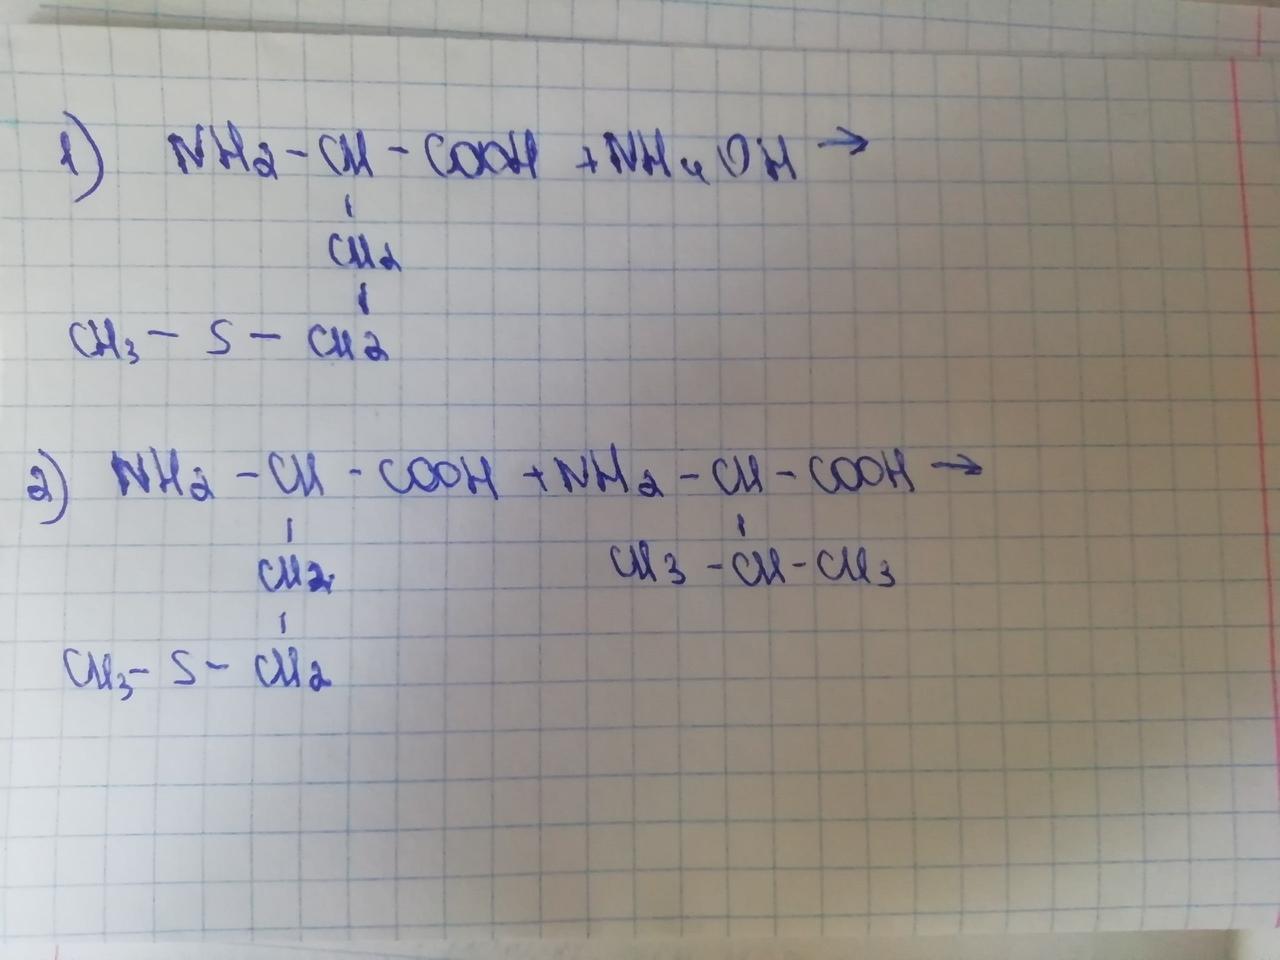 1) NH2 - CH - COOH + NH4OH →
CH2
CH3 - S - CH2
2) NH2 - CH - COOH + NH2 - CH - COOH →
CH2 CH3 - CH - CH3
CH3 - S - CH2